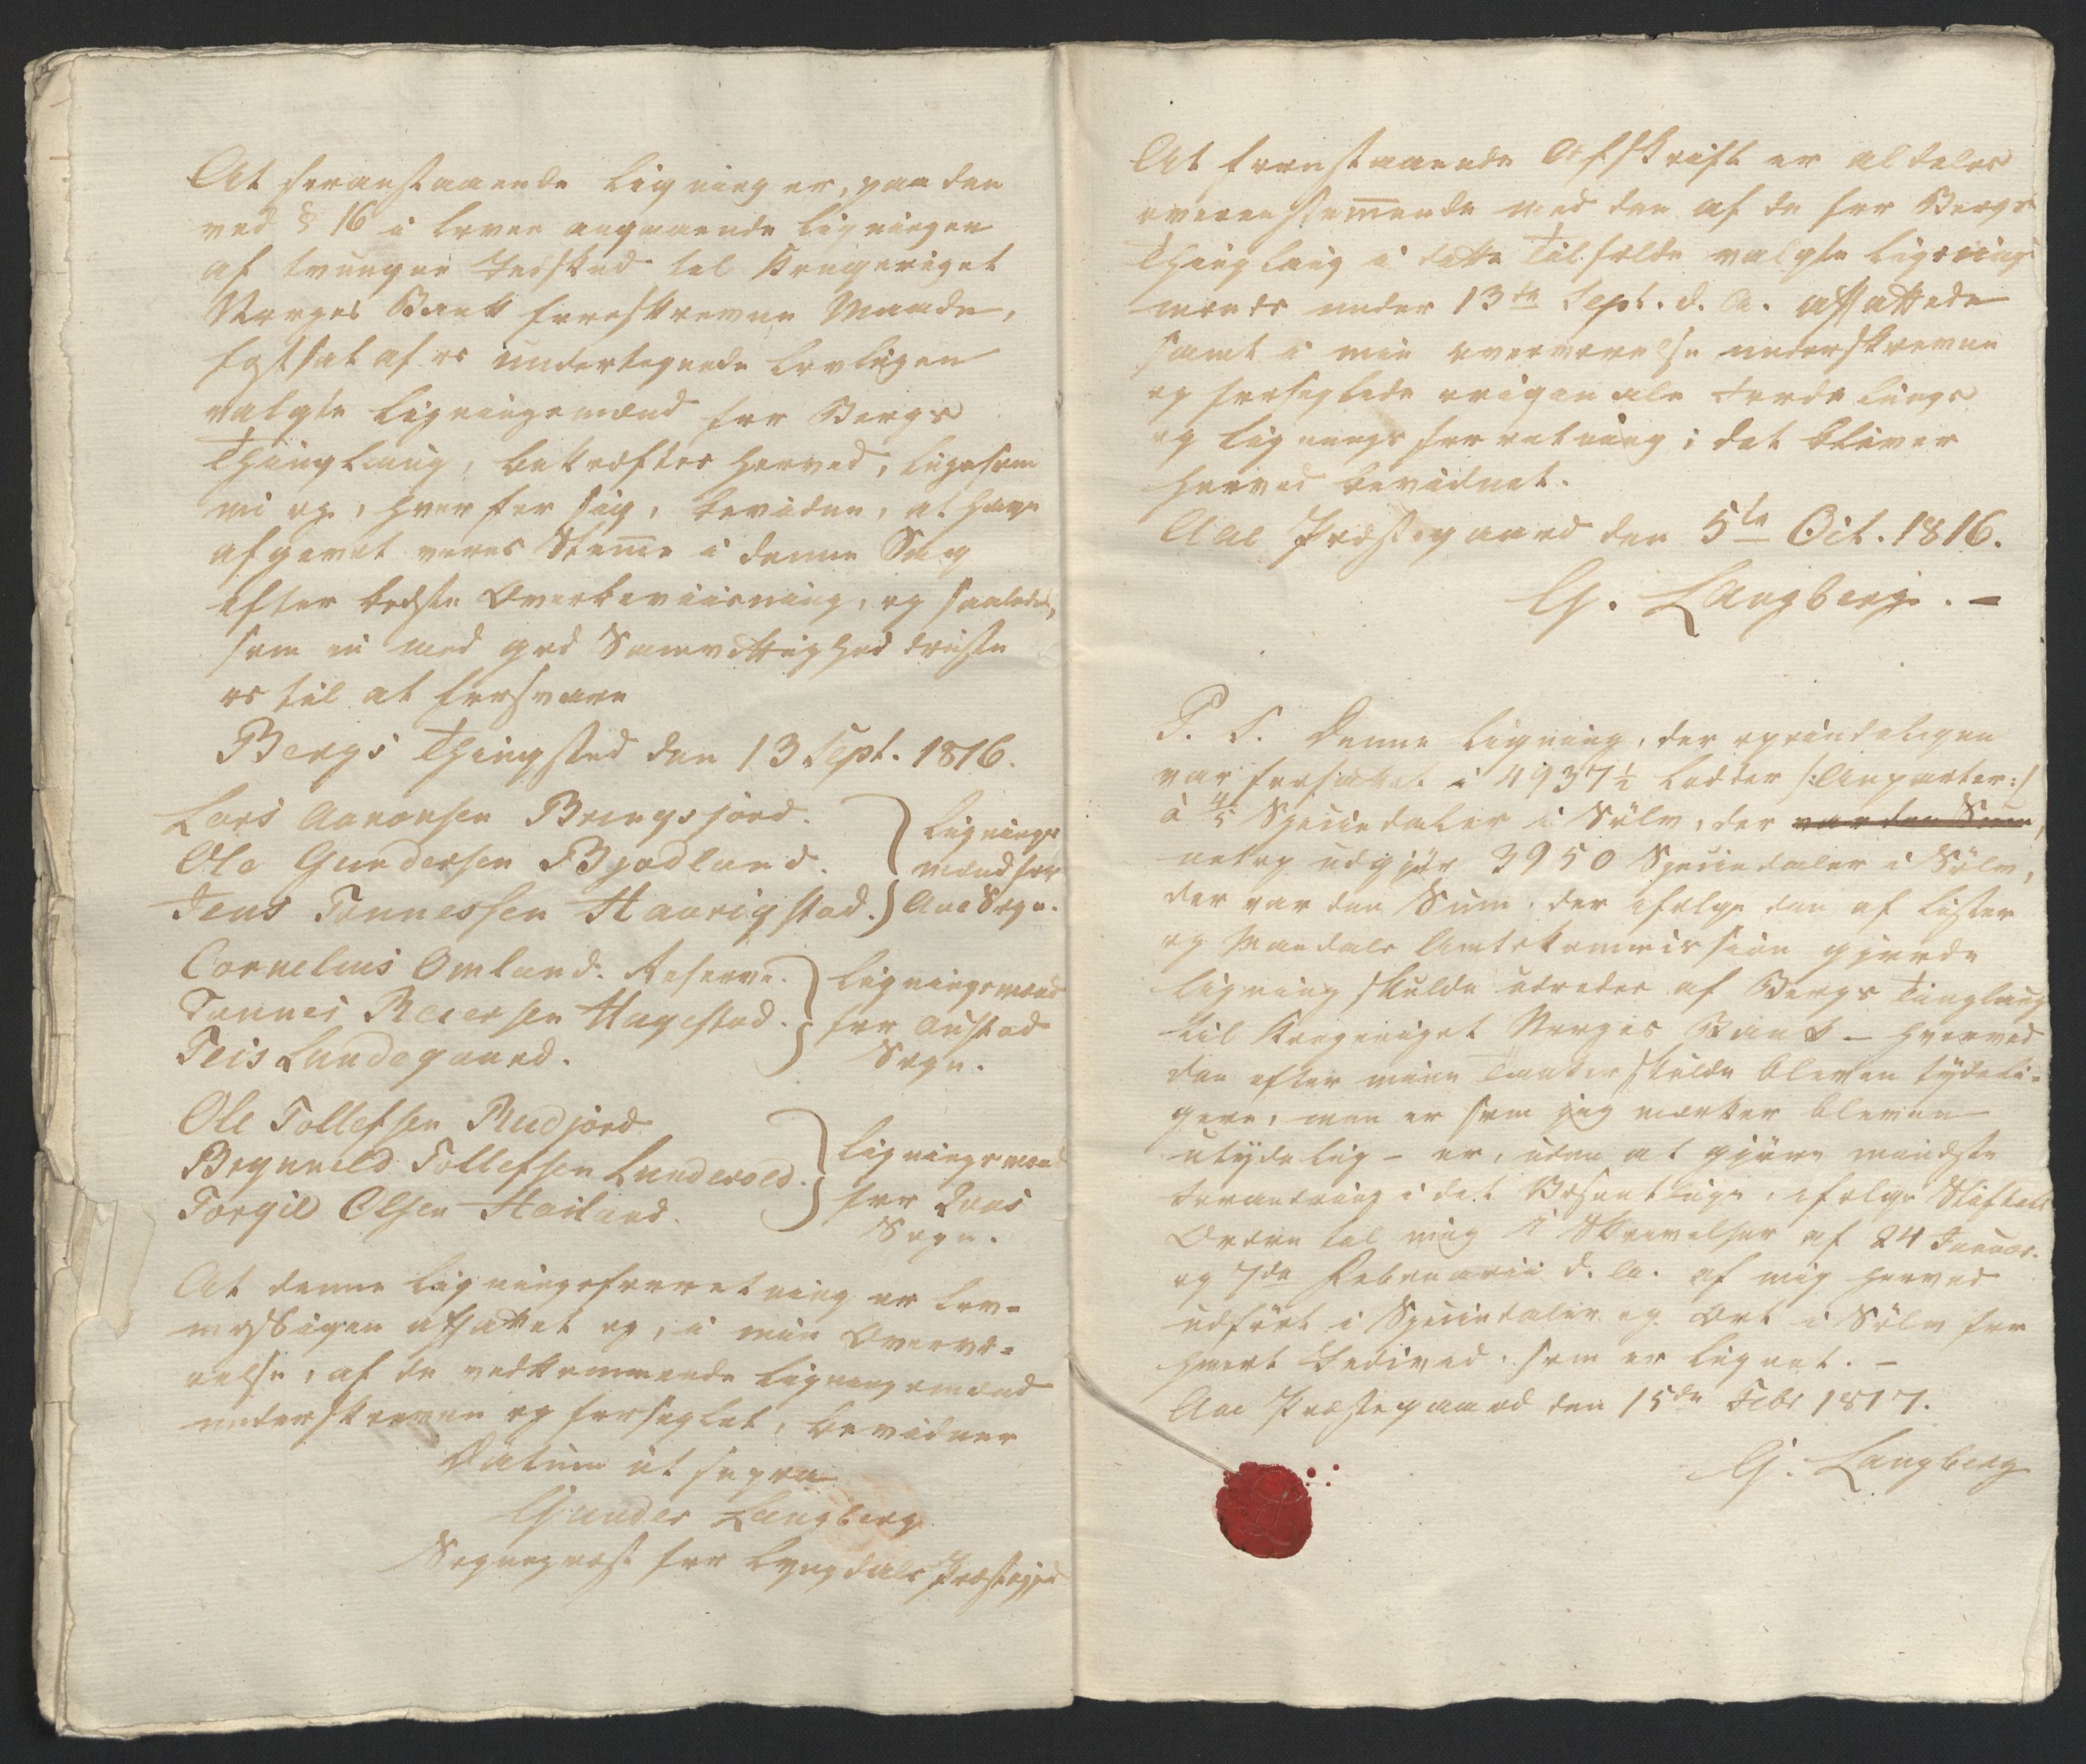 At foranstaaende Ligning er, paa den
ved § 16 i Loven angaaende Ligningen
af tvungne Indskud til Kongeriget
Norges Bank foreskrevne Maade,
fastsat af os undertegnede lovligen
valgte Ligningsmænd for Bergs
Thinglaug, bekræftes herved, ligesom
vi og, hver for sig, bevidne, at have
afgivet vores Stem̅e i denne Sag
efter bedste Overbeviisning, og saaledes,
som vi med god Samvittighed trøste
os til at forsvare
Bergs Thingsted den 13 Sept. 1816.
Lars Aanonsen Bringsjord.
Ole Gundersen Bjødland.
Jens Tønnessen Haarigstad.
Lignings
mænd for
Aae Sogn.
Cornelius Omland. Reserve.
Tønnes Reiersen Hagestad.
Teis Lundegaard.
Ligningsmænd
for Austad
Sogn.
Ole Tollefsen Rudjord
Brynneld Tollefsen Lundevold.
Torgild Olsen Hailand.
Ligningsmænd
for Qvaas
Sogn.
At denne Ligningsforretning er lov-
mæssigen affattet og, i min Overvæ-
relse, af de vedkommende Ligningsmænd
underskreven og forseglet, bevidner
Datum ut supra
Gunder Langberg
Sogneprest for Lyngdals Præstegjed
At foranstaaende Afskrift er aldeles
overeenstem̅ende med den af de for Bergs
Thinglaug i dette Tilfælde valgte Lignings
mænds under 13de Sept. d. A. affattede
samt i min overværelse underskrevne
og forseglede originale Fordelings
og Ligningsforretning; det bliver
herved bevidnet.
Aae Præstegaard den 5te Oct. 1816.
G. Langberg. -
P. S. Denne Ligning, der oprindeligen
var forfattet i 4937½ Lodder /: Anparter :/
à 4/5 Speciedaler i Sølv, der var den Sum,
netop udgjør 3950 Speciedaler i Sølv,
der var den Sum, der ifølge den af Lister
og Mandals Amtskommission gjorde
Ligning skulde udredes af Bergs Tinglaug
til Kongeriget Norges Bank - hvorved
den efter mine Tanker skulde bleven tydeli-
gere, men er som jeg mærker bleven
utydelig - er, uden at gjøre mindste
Forandring i det Væsentlige, ifølge Stiftets
Ordre til mig i Skrivelser af 24 Januar.
og 7de Februarii d. A. af mig herved
udført i Speciedaler og Ort i Sølv for
hvert Individ, som er lignet. -
Aae Præstegaard den 15de Febr 1817.
G. Langberg